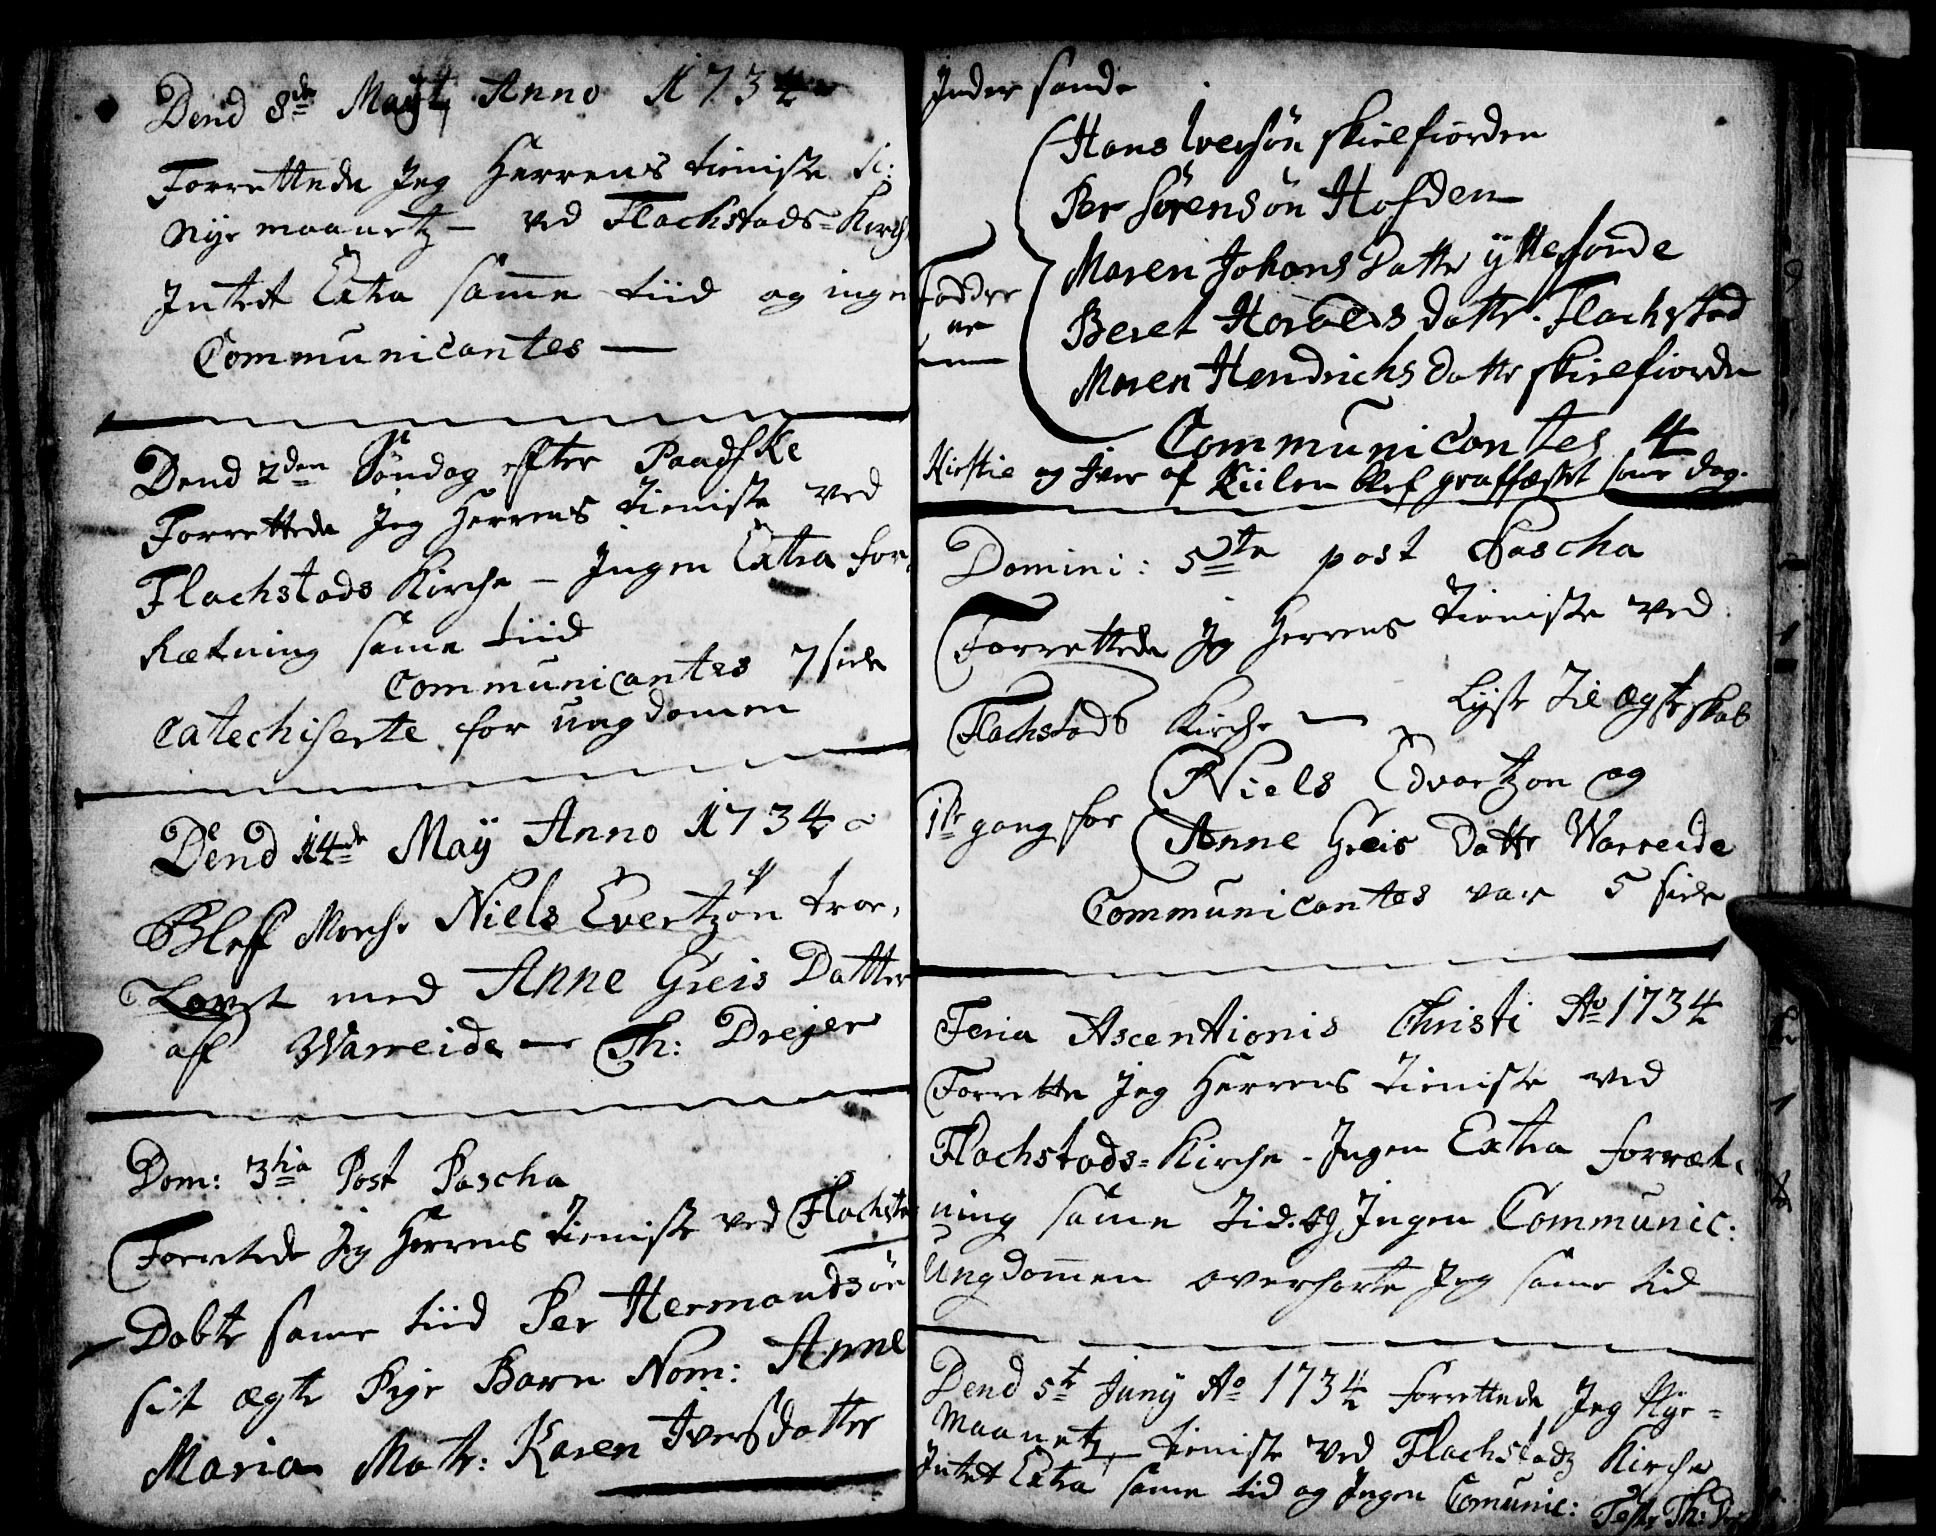 Dend 8de Maÿ Anno 1734
Forrettede Jeg Herrens tieniste
Nÿe maanetz — ved Flachstads-Kirch
Intet Extra same tiid og inge
Communicantes —
Dend 2den Söndag efter Paadske
Forrettede Jeg Herrens tieniste ved
Flachstads Kirche — Ingen Extra for-
Rætning same tiid
Communicantes 7 siele
Catechiserte for ungdomen
Dend 14de Maÿ Anno 1734
Bleff Niels Evertzön troe-
Lovet med Anne Greis Datter
aff Warreide — Th: Drejer
Dom: 3tia Post Pascha
Forrettede Jeg Herrens tieniste ved Flachsta
Döbte same tiid Per Hermandsön
sit ægte Pige Barn Nom: Anne
Maria Mat: Karen Iversdatter
Fadder
ne
Hans Iversön skielfiorden
Per Sörensön Hofden
Maren Johans Datter
Beret Datter Flachstad
Maren Hendrichs Datter skielfiorden
Communicantes 4
Kirstie og Iver af Kiilen blef same dag.
Domini: 5te post Pascha
Forrettede Jeg Herrens tieniste ved
Flachstads Kirche — Lÿste til Ægteskab
1ste gang for
Niels Edvartzon og
Anne Greis Datter Warreide
Communicantes var 5 siele
Feria Ascentionis Christi Ao 1734
Forrette Jeg Herrens tieniste ved
Flachstads-Kirche - Ingen Extra forræt-
ning same tid. og Ingen Communic:
Ungdomen overhörte Jeg same tid —
Dend 5te Junÿ Ao 1734 forrettede Jeg Nÿe-
Maanetz tieniste ved Flachstadz Kirche
Intet Extra same tid og Ingen Comunic: Test: Th: